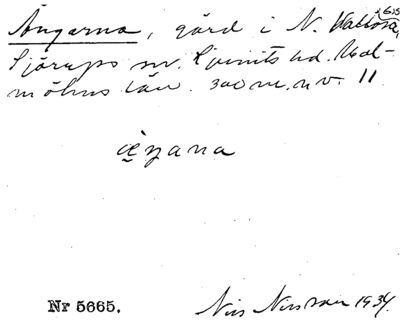 Ängarna, gård i N. Vallösa,
Sjörups sn. Ljunits hd. Mal-
möhus län. 300 m. n.v. 11
æŋana
Nr 5665. Nils Nilsson 1934.